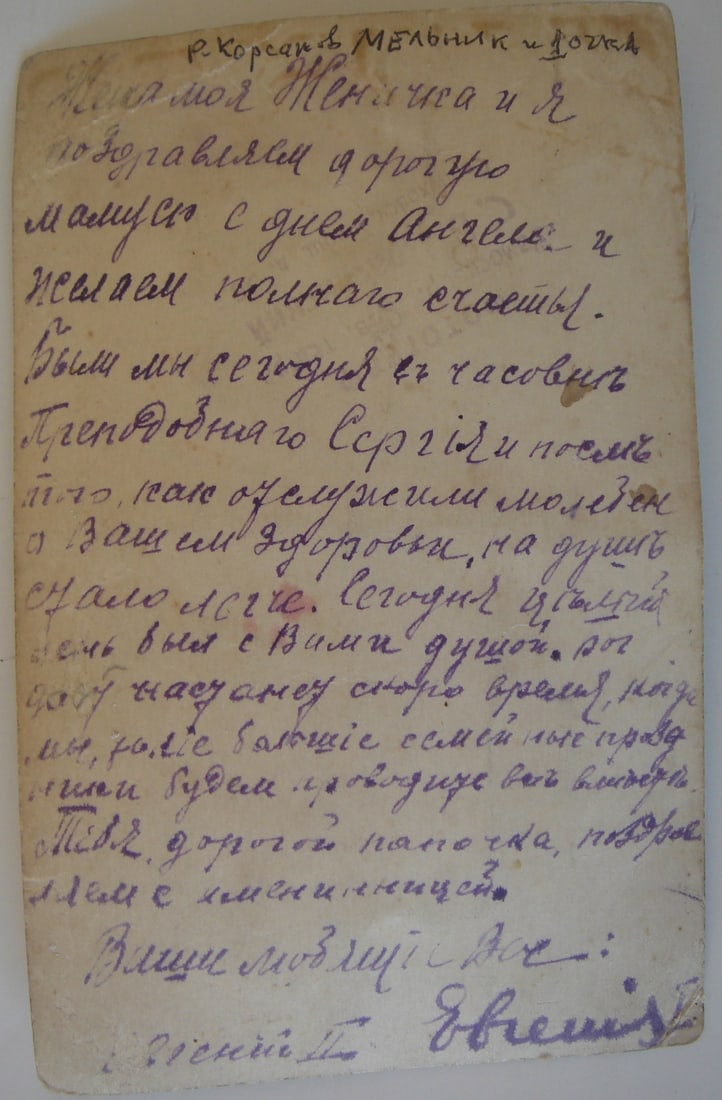 Р. Корсаков МЕЛЬНИК и ДОЧКА
Жена моя Женичка и я
поздравляем дорогую
мамусю с днем Ангела и
желаем полнаго счастья.
Были мы сегодня въ часовнѣ
Преподобнаго Сергія и послѣ
того, как отслужили молебен
о Вашем здоровьи, на душѣ
стало легче. Сегодня цѣлый
день был с Вами душой. Бог
даст настанет скоро время, когда
мы, такіе большіе семейные празд
ники будем проводить всѣ вмѣстѣ.
Тебя, дорогой папочка, поздрав
ляем с именинницей.
Ваши любящіе Вас:
Евгенія I
Евгеній II